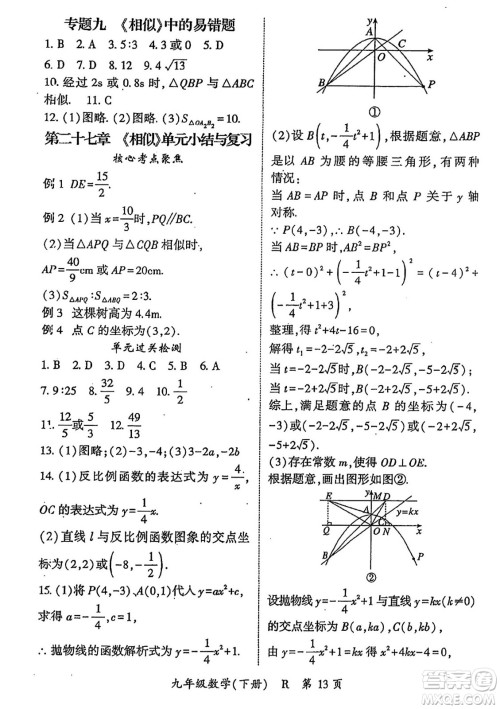 专题九 《相似》中的易错题
1. B 2. A 3. 5∶3 4. D 5. A
6. D 7. D 8. 12 9. 4√13
10. 经过 2s 或 0.8s 时,△QBP 与△ABC
相似. 11. C
12. (1)图略. (2)图略. (3)S△OA₂B₂=10.
第二十七章 《相似》单元小结与复习
核心考点聚焦
例 1 DE=15/2.
例 2 (1)当 x=10/3时,PQ∥BC.
(2)当△APQ 与△CQB 相似时,
AP=40/9cm 或 AP=20cm.
(3)S△APQ∶S△ABQ=2∶3.
例 3 这棵树高为 4.4m.
例 4 点 C 的坐标为(3,2).
单元过关检测
1. B 2. D 3. C 4. B 5. A 6. C
7. 9∶25 8. 32/5 9. 16 10. 1/2
11. 12/5或5/3 12. √5/5
13. (1)图略;(2)-3,-4;(3)3-2a,-2b
14. (1)反比例函数的表达式为 y=4/x,
OC 的表达式为 y=1/4x.
(2)直线 l 与反比例函数图象的交点坐
标为(2,2)或(-8,-1/2).
15. (1)将 P(4,-3)、A(0,1)代入 y=ax²+c
求得 a=-1/4,c=1.
∴抛物线的函数解析式为 y=-1/4x²+1.
y
A
O
x
B
P
①
(2)设 B(t,-1/4t²+1),根据题意,△ABP
是以 AB 为腰的等腰三角形,有两种
情况:
当 AB=AP 时,点 B 和点 P 关于 y 轴
对称.
∵P(4,-3),∴B(-4,-3).
当 AB=BP 时,则 AB²=BP².
∴(t-0)²+(-1/4t²+1-1)²=(t-4)²+
(-1/4t²+1+3)².
整理,得 t²+4t-16=0.
解得 t₁=-2-2√5,t₂=-2+2√5.
当 t=-2-2√5时,B(-2-2√5,-5-2√5).
当 t=-2+2√5时,B(-2+2√5,-5+2√5).
综上,满足题意的 B 点坐标为(-4,
-3)或(-2-2√5,-5-2√5)或(-2+
2√5,-5+2√5).
(3)存在常数 m,使得 OD⊥OE.
根据题意,画出图形如图②.
E M D y=kx
A C
Q O N x
B P
②
设抛物线 y=-1/4x²+1 与 y=kx(k≠0)
的交点坐标为 B(a,ka),C(b,kb).
由 y=-1/4x²+1,y=kx 得
九年级数学(下册) R 第 13 页